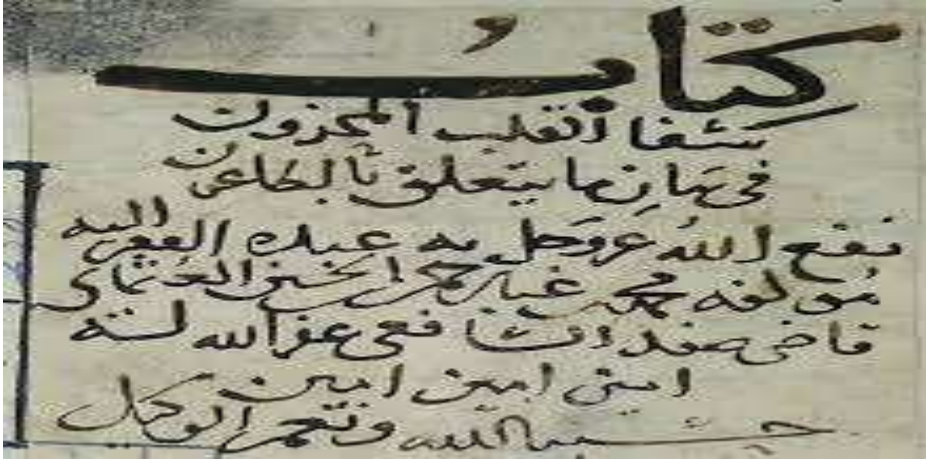 كتاب
شفا القلب المحزون
في بيان ما يتعلق بالطاعون
نفع الله عز وجل به عبده الفقير اليه
مؤلفه محمد بن عبد الرحمن العثماني
قاضي صفد الشافعي عفر الله له
امين امين امين
حسبنا الله ونعم الوكيل